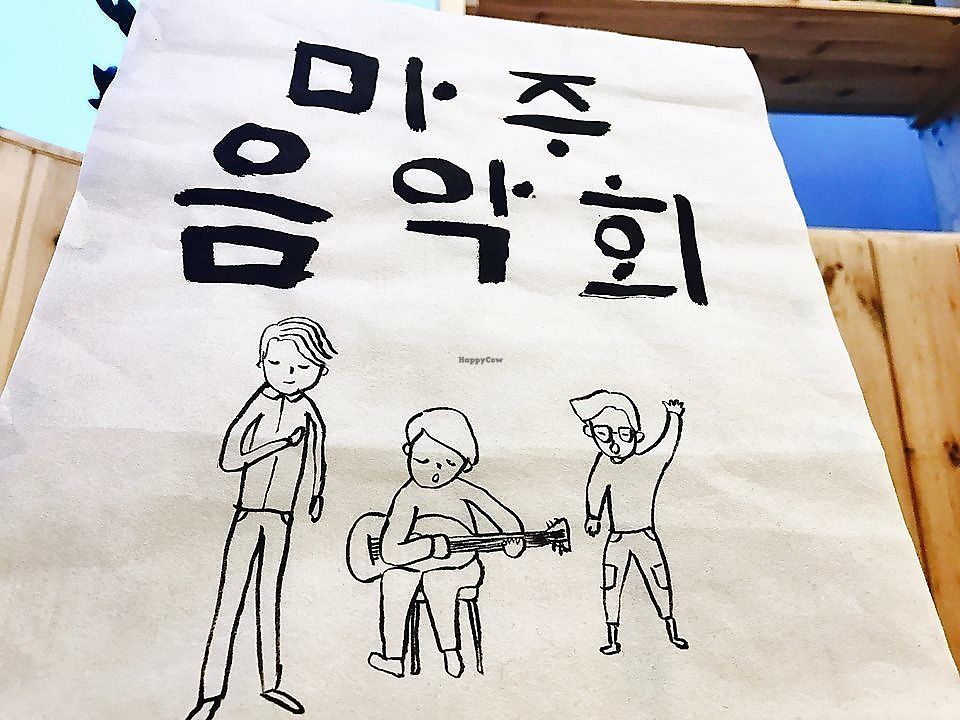 마주
음악회
HappyCow